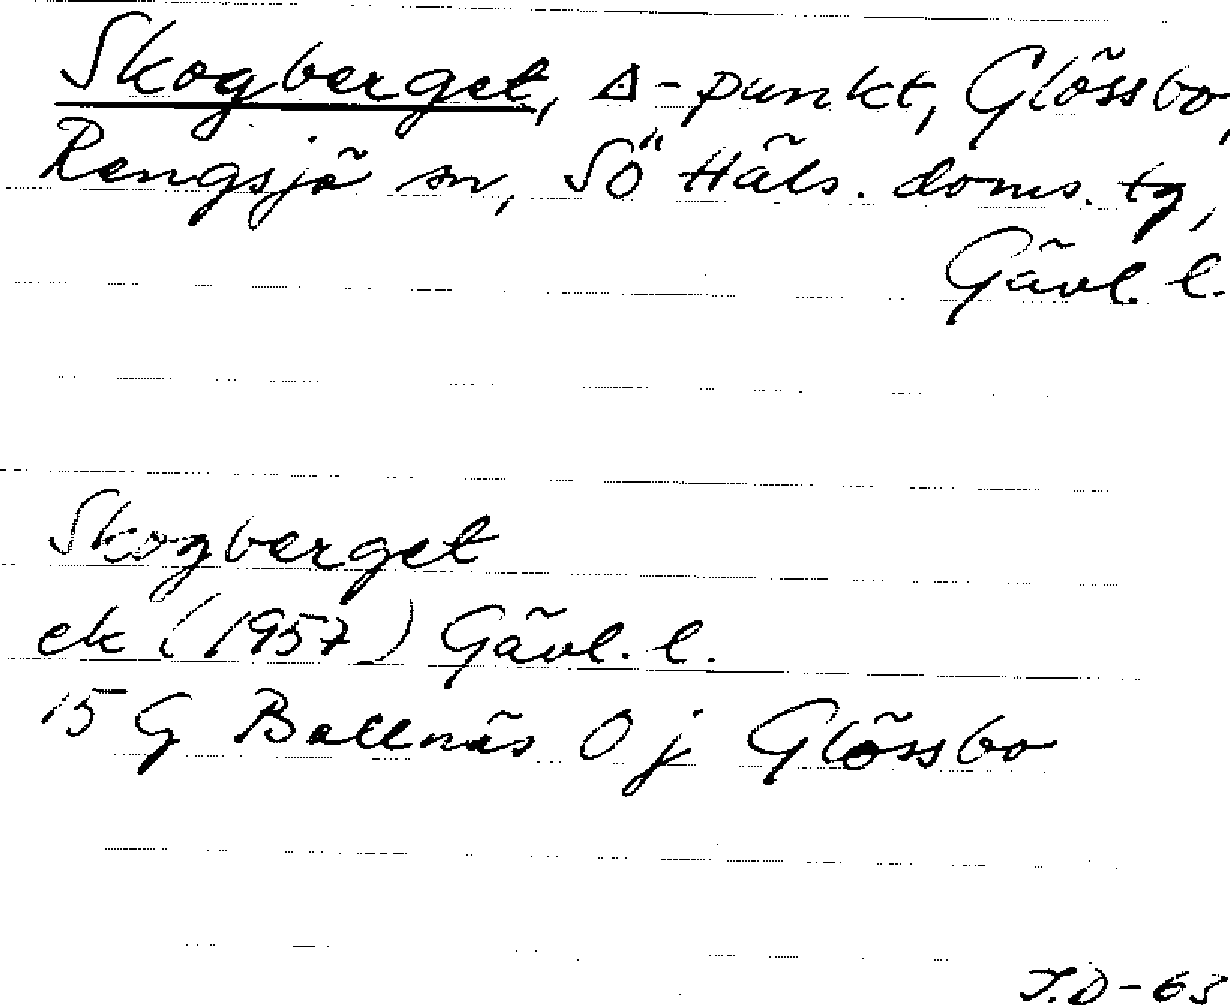 Skogberget, Δ-punkt, Glössbo,
Rengsjö sn, SÖ Häls. doms. tg,
Gävl. l.
Skogberget
ek (1957) Gävl. l.
15 G Bollnäs 0 j Glössbo
I.D-63